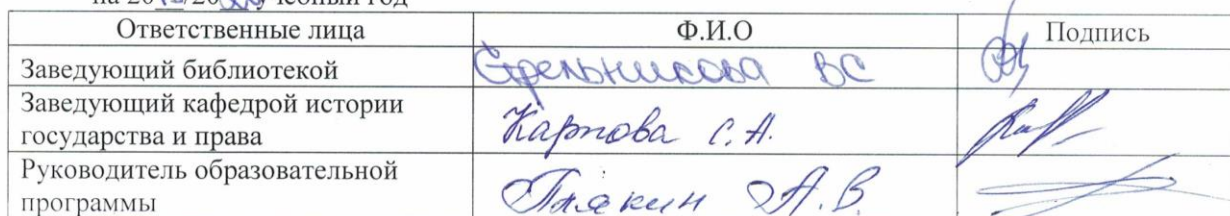 на 20 /20 учебный год
Ответственные лица Ф.И.О Подпись
Заведующий библиотекой Стрельникова ВС
Заведующий кафедрой истории
государства и права Карпова С.А.
Руководитель образовательной
программы А.В.